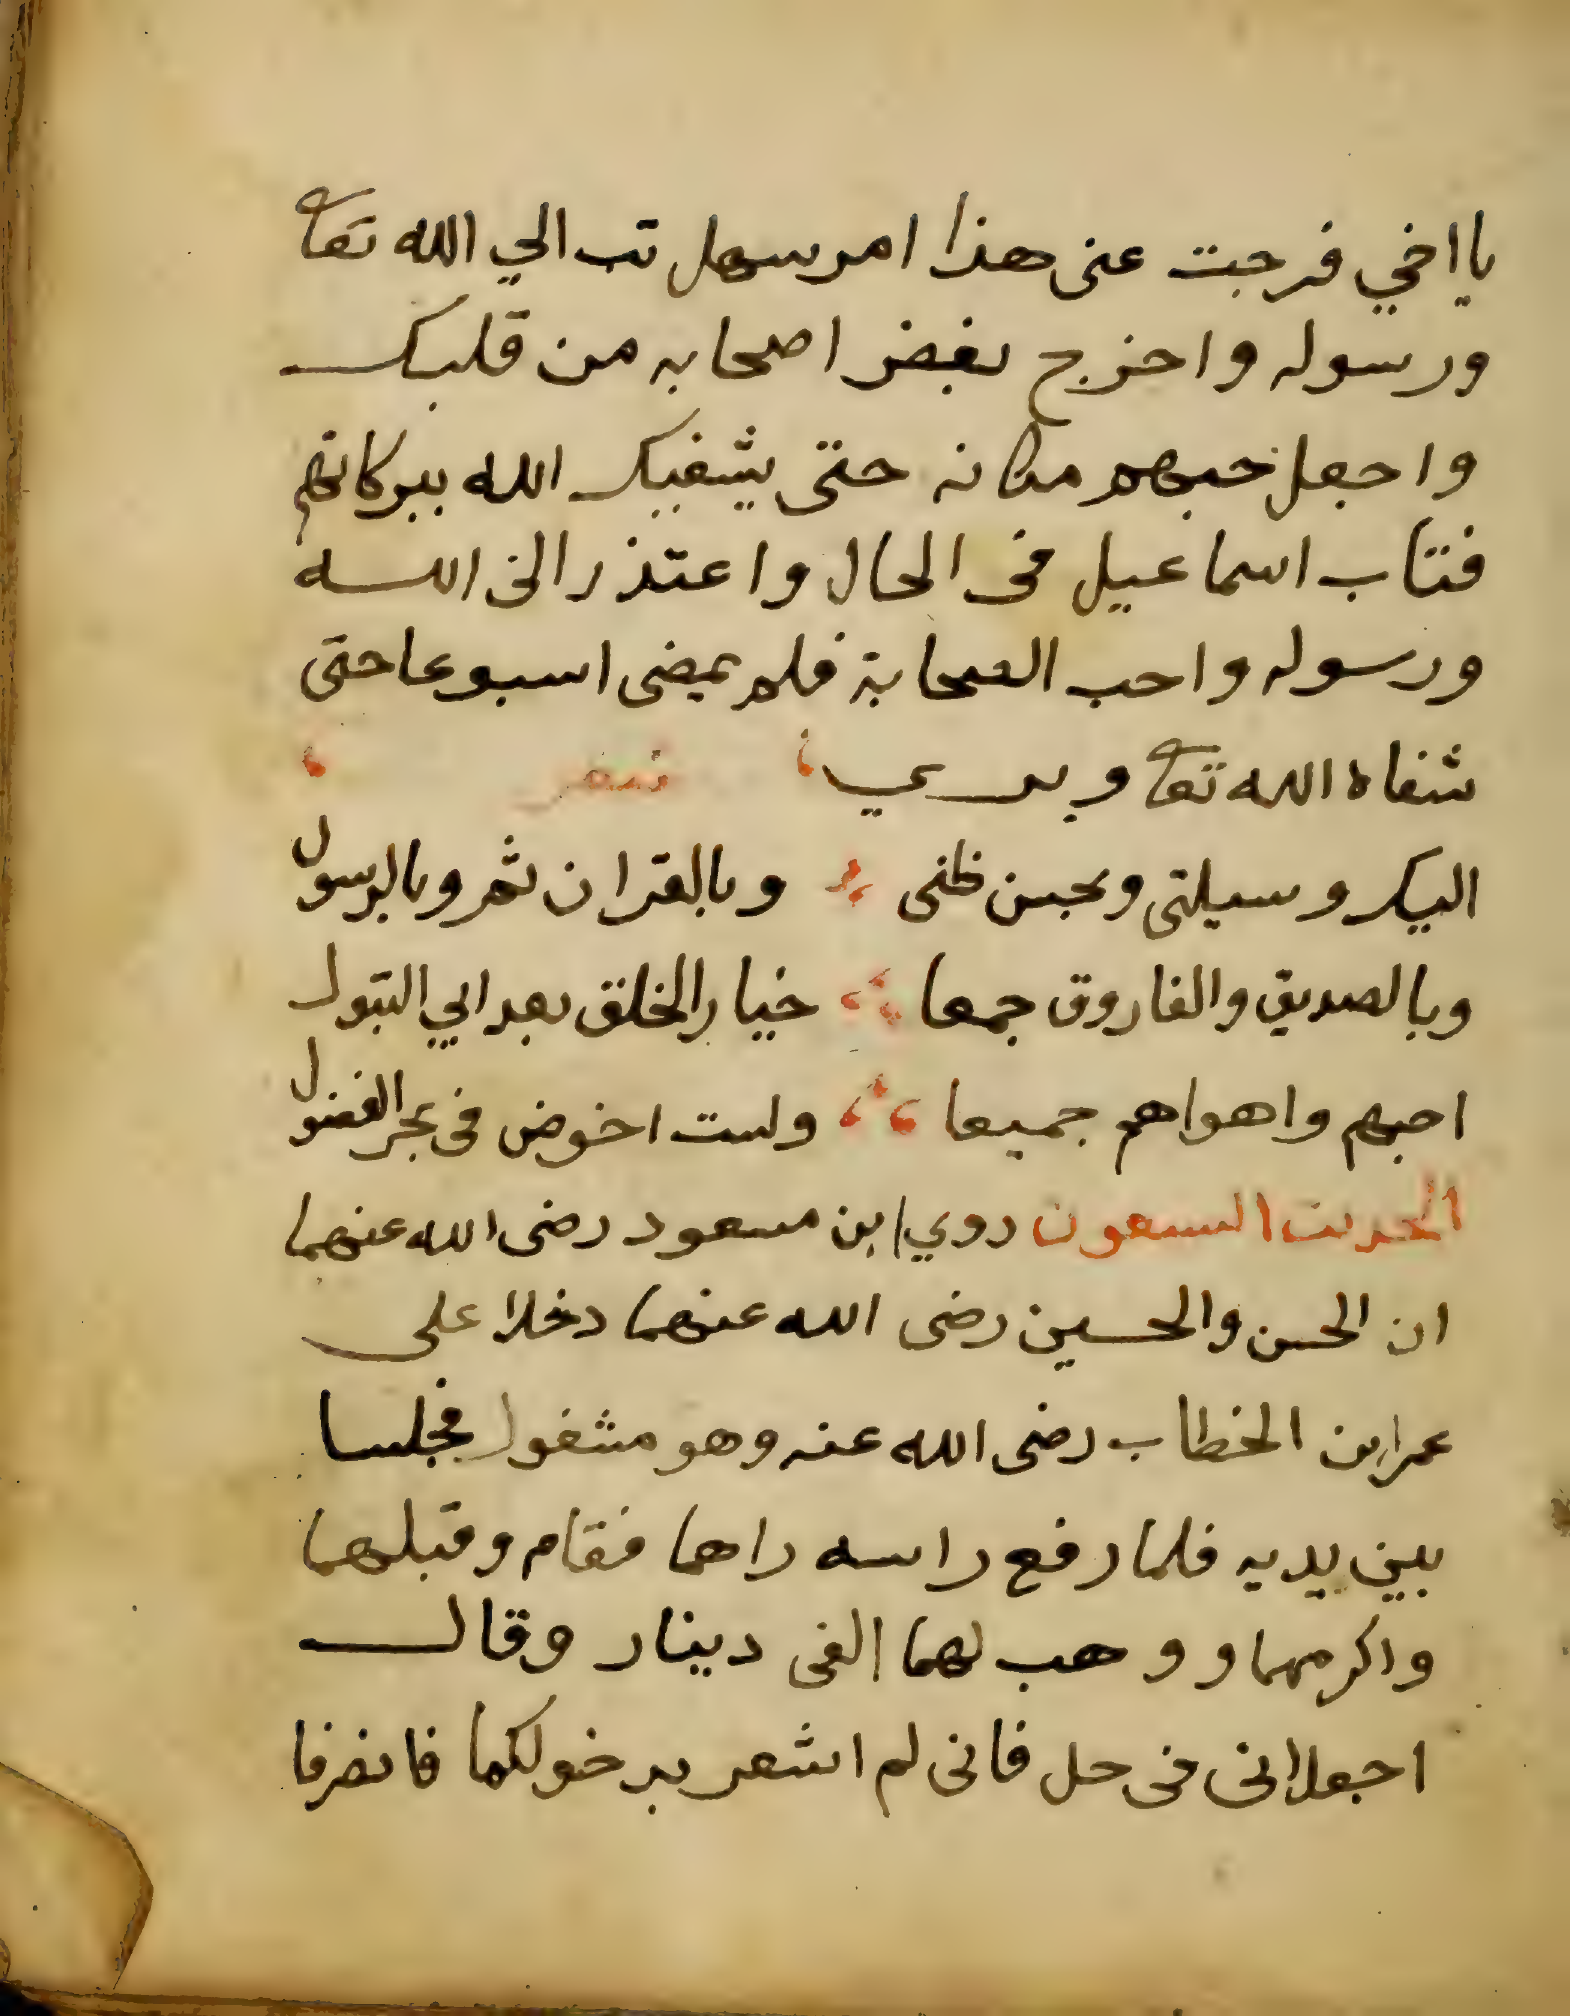 يا اخي فرجت عنى هذا امر سهل تب الي الله تعا
ورسوله واخرج بغض اصحابه من قلبك
واجعل حبهم مكانه حتى يشفيك الله ببركاتهم
فتاب اسماعيل فى الحال واعتذر الى الله
ورسوله واحب الصحابة فلم يمضى اسبوعا حتى
شفاه الله تعا وبري شعر
اليك وسيلتى وبحسن ظنى وبالقران ثم وبالرسول
وبالصديق والفاروق جمعا خيار الخلق بعد ابي البتول
احبهم واهواهم جميعا ولست اخوض فى بحر الفضول
الحديث السبعون روي ابن مسعود رضى الله عنهما
ان الحسن والحسين رضى الله عنهما دخلا على
عمر ابن الخطاب رضى الله عنه وهو مشغول فجلسا
بين يديه فلما رفع راسه راهما فقام وقبلهما
واكرمهما ووهب لهما الفى دينار وقال
اجعلانى فى حل فانى لم اشعر بدخولكما فانصرفا